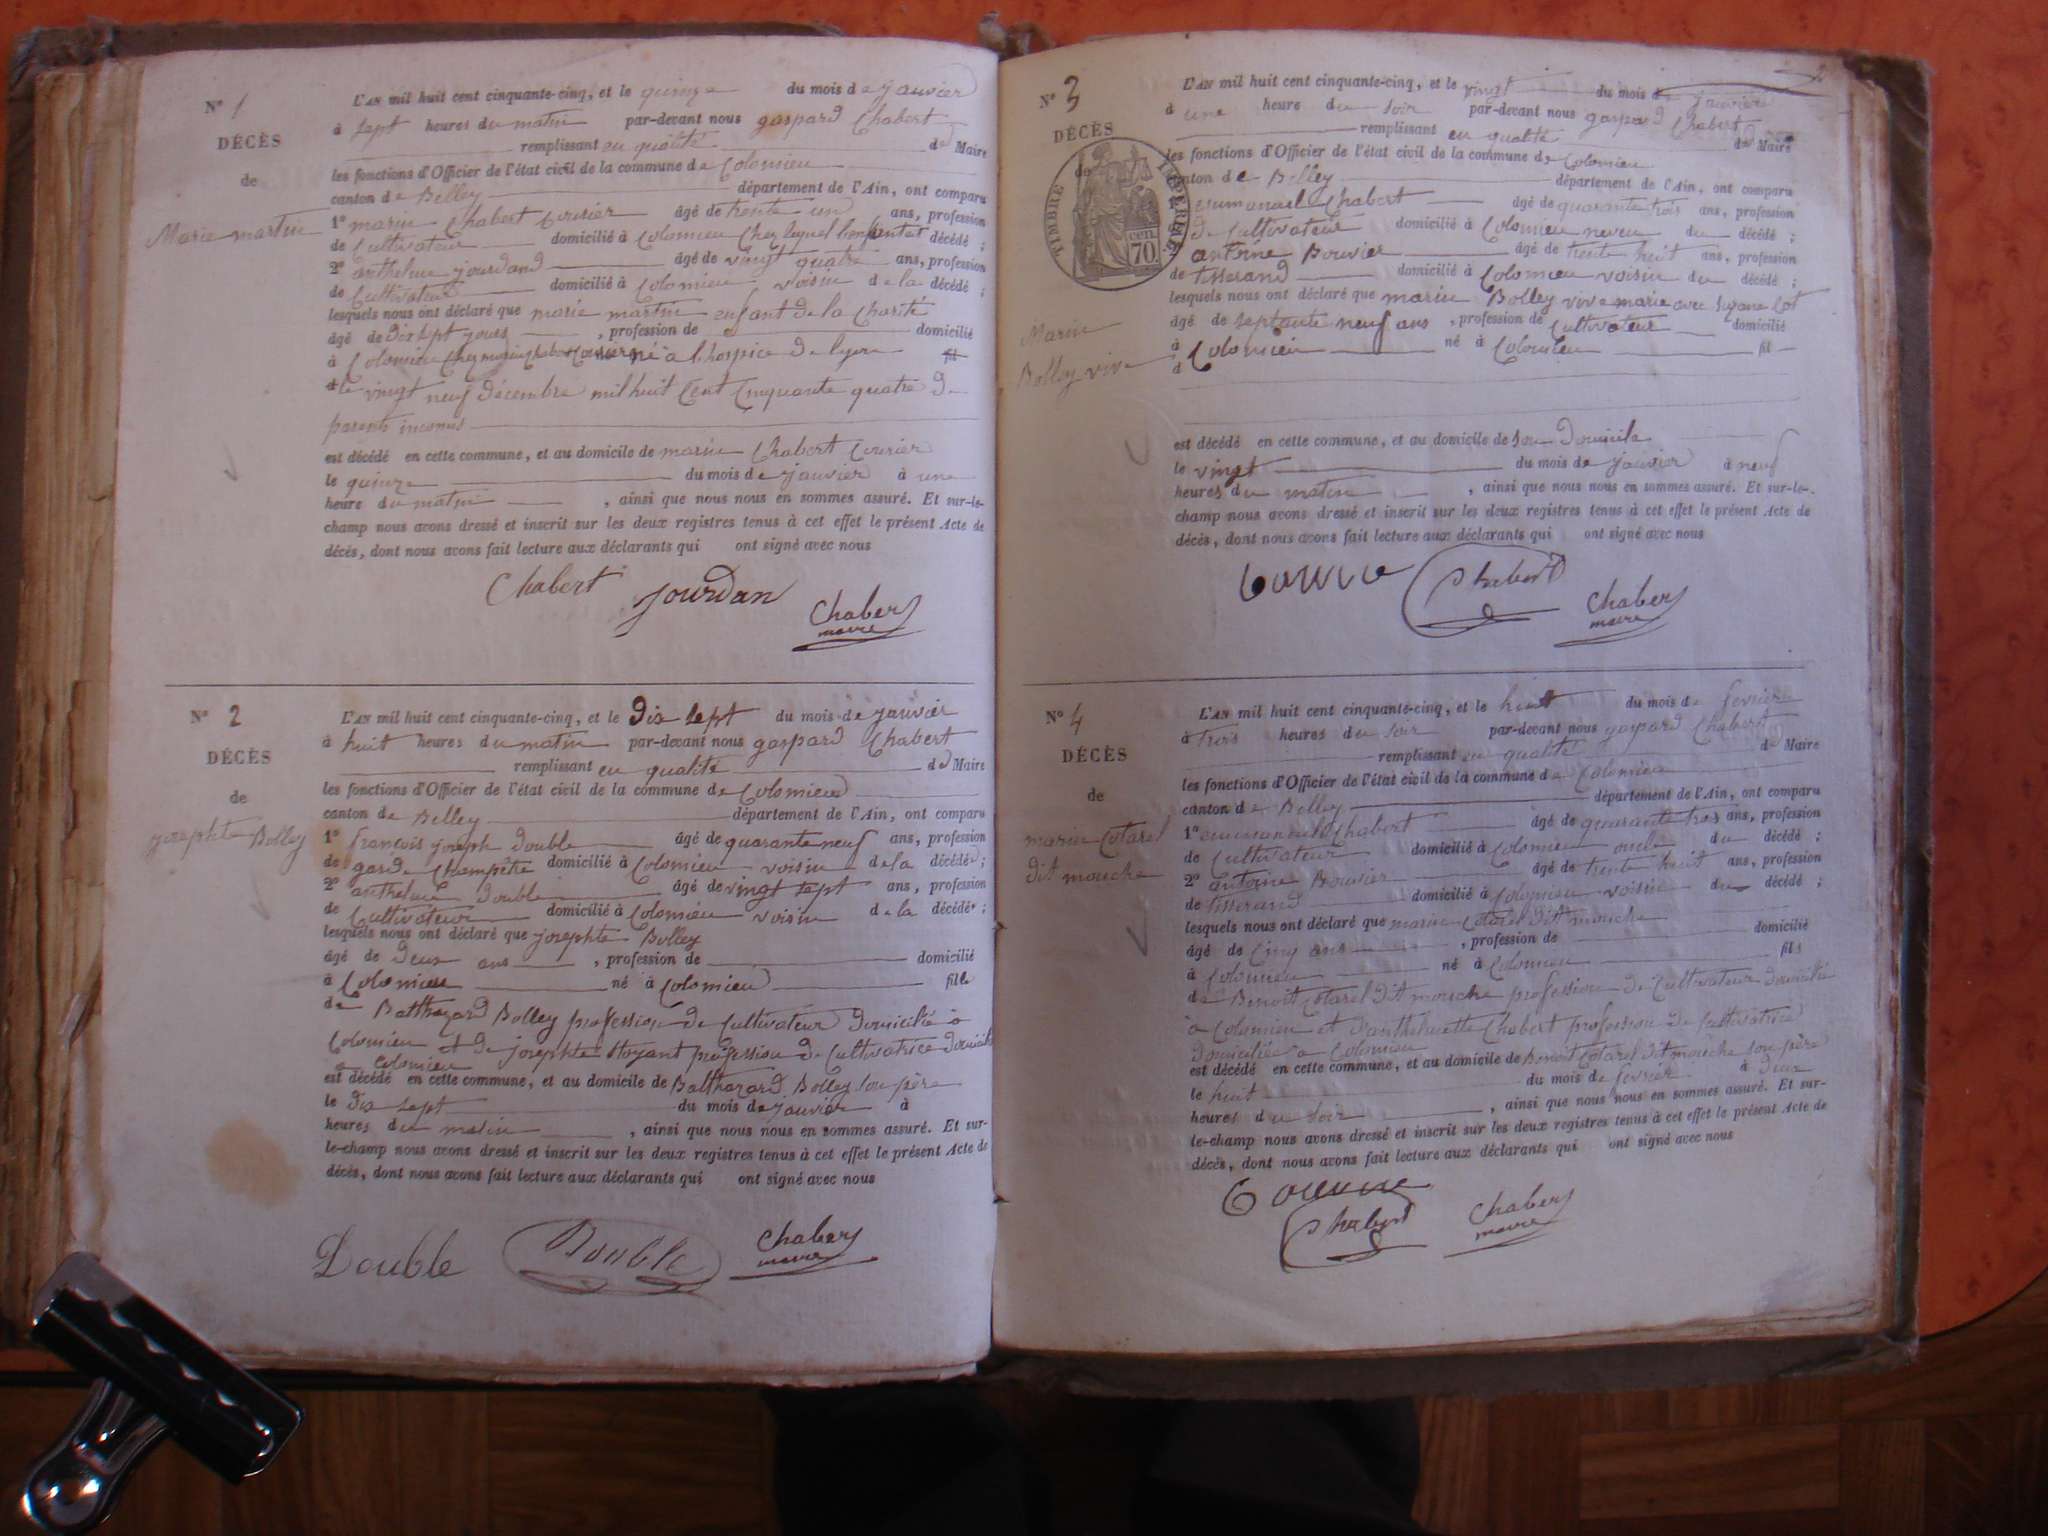 N° 1
DÉCÈS
de
Marie martin
L'AN mil huit cent cinquante-cinq, et le quinze du mois de janvier
à sept heures du matin par-devant nous gaspard Chabert
remplissant en qualité de Maire
les fonctions d'Officier de l'état civil de la commune de Colomieu
canton de Belley département de l'Ain, ont comparu
1° marin Chabert Courier âgé de trente un ans, profession
de Cultivateur domicilié à Colomieu Chez lequel lenfant est décédé ;
2° anthelme jourdand âgé de vingt quatre ans, profession
de Cultivateur domicilié à Colomieu voisin de la décédé ;
lesquels nous ont déclaré que marie martin enfant de la Charité
âgé de dix sept jours , profession de domicilié
à Colomieu Chez né a lhospice de lyon fil
le vingt neuf décembre mil huit Cent Cinquante quatre de
parents inconus
est décédé en cette commune, et au domicile de marin Chabert Courier
le quinze du mois de janvier à une
heure du matin , ainsi que nous nous en sommes assuré. Et sur-le-
champ nous avons dressé et inscrit sur les deux registres tenus à cet effet le présent Acte de
décès, dont nous avons fait lecture aux déclarants qui ont signé avec nous
Chabert Jourdan Chabert
maire
N° 2
DÉCÈS
de
josephte Bolley
L'AN mil huit cent cinquante-cinq, et le Dix sept du mois de janvier
à huit heures du matin par-devant nous gaspard Chabert
remplissant en qualité de Maire
les fonctions d'Officier de l'état civil de la commune de Colomieu
canton de Belley département de l'Ain, ont comparu
1° françois joseph Double âgé de quarante neuf ans, profession
de garde Champêtre domicilié à Colomieu voisin de la décédé ;
2° anthelme Double âgé de vingt sept ans, profession
de Cultivateur domicilié à Colomieu voisin de la décédé ;
lesquels nous ont déclaré que josephte Bolley
âgé de Deux ans , profession de domicilié
à Colomieu né à Colomieu fille
de Balthazard Bolley profession de Cultivateur domicilié à
Colomieu et de josephte profession de Cultivatrice domicile
a Colomieu
est décédé en cette commune, et au domicile de Balthazard Bolley son père
le dix sept du mois de janvier à
heures du matin , ainsi que nous nous en sommes assuré. Et sur-
le-champ nous avons dressé et inscrit sur les deux registres tenus à cet effet le présent Acte de
décès, dont nous avons fait lecture aux déclarants qui ont signé avec nous
Double Double Chabert
maire
N° 3
DÉCÈS
de
TIMBRE IMPÉRIAL
70 cen.
Marin
Bolley vive
L'AN mil huit cent cinquante-cinq, et le vingt du mois de janvier
à une heure du soir par-devant nous gaspard Chabert
remplissant en qualité de Maire
les fonctions d'Officier de l'état civil de la commune de Colomieu
canton de Belley département de l'Ain, ont comparu
Chabert âgé de quarante trois ans, profession
de Cultivateur domicilié à Colomieu neveu du décédé ;
antoine Bouvier âgé de trente huit ans, profession
de tisserand domicilié à Colomieu voisin du décédé ;
lesquels nous ont déclaré que marin Bolley vive marie avec
âgé de septante neuf ans , profession de Cultivateur domicilié
à Colomieu né à Colomieu fil
d
est décédé en cette commune, et au domicile de son domicile
le vingt du mois de janvier à neuf
heures du matin , ainsi que nous nous en sommes assuré. Et sur-le-
champ nous avons dressé et inscrit sur les deux registres tenus à cet effet le présent Acte de
décès, dont nous avons fait lecture aux déclarants qui ont signé avec nous
Chabert Chabert
maire
N° 4
DÉCÈS
de
marin Cotarel
dit mouche
L'AN mil huit cent cinquante-cinq, et le huit du mois de fevrier
à trois heures du soir par-devant nous gaspard Chabert
remplissant en qualité de Maire
les fonctions d'Officier de l'état civil de la commune de Colomieu
canton de Belley département de l'Ain, ont comparu
1° Chabert âgé de quarante trois ans, profession
de Cultivateur domicilié à Colomieu oncle du décédé ;
2° antoine Bouvier âgé de trente huit ans, profession
de tisserand domicilié à Colomieu voisin du décédé ;
lesquels nous ont déclaré que marin Cotarel dit mouche
âgé de Cinq ans , profession de domicilié
à Colomieu né à Colomieu fils
de Benoit Cotarel dit mouche profession de Cultivateur domicilié
à Colomieu et d'anthelmette Chabert profession de Cultivatrice
domiciliée a Colomieu
est décédé en cette commune, et au domicile de Benoit Cotarel dit mouche son père
le huit du mois de fevrier à deux
heures du soir , ainsi que nous nous en sommes assuré. Et sur-
le-champ nous avons dressé et inscrit sur les deux registres tenus à cet effet le présent Acte de
décès, dont nous avons fait lecture aux déclarants qui ont signé avec nous
Chabert Chabert
maire